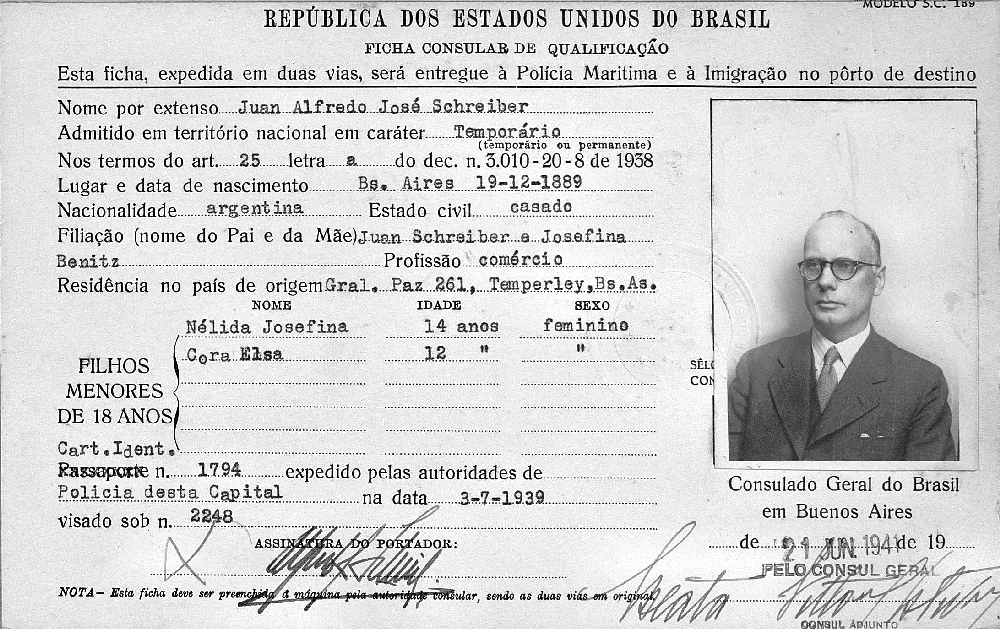 MODELO S.C. 139
REPÚBLICA DOS ESTADOS UNIDOS DO BRASIL
FICHA CONSULAR DE QUALIFICAÇÃO
Esta ficha, expedida em duas vias, será entregue à Polícia Maritima e à Imigração no pôrto de destino
Nome por extenso Juan Alfredo José Schreiber
Admitido em território nacional em caráter Temporário
(temporário ou permanente)
Nos termos do art. 25 letra a do dec. n. 3.010-20-8 de 1938
Lugar e data de nascimento Bs. Aires 19-12-1889
Nacionalidade argentina Estado civil casado
Filiação (nome do Pai e da Mãe) Juan Schreiber e Josefina
Benitz Profissão comércio
Residência no país de origem Gral. Paz 261, Temperley, Bs.As.
NOME IDADE SEXO
Nélida Josefina 14 anos feminino
Cora Elsa 12 " "
FILHOS
MENORES
DE 18 ANOS
SÊL
CON
Cart.Ident.
Passaporte n. 1794 expedido pelas autoridades de
Policia desta Capital na data 3-7-1939
visado sob n. 2248
ASSINATURA DO PORTADOR:
NOTA — Esta ficha deve ser preenchida á máquina pela autoridade consular, sendo as duas vias em original.
Consulado Geral do Brasil
em Buenos Aires
de 21 JUN. 1941 de 19
PELO CONSUL GERAL
CONSUL ADJUNTO